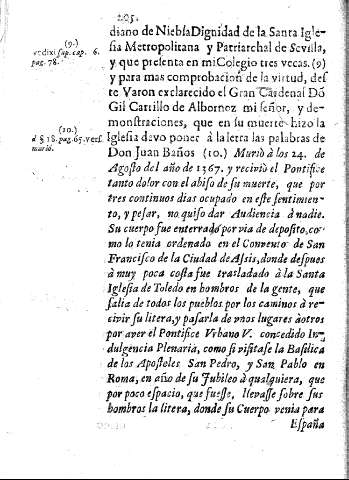 205.
diano de Niebla Dignidad de la Santa Igle-
sia Metropolitana y Patriarchal de Sevilla,
(9.)
vt dixi sup. cap. 6.
pag. 78.
y que presenta en mi Colegio tres vecas. (9)
y para mas comprobacion de la virtud, des
te Varon exclarecido el Gran Cardenal Dõ
Gil Carrillo de Albornoz mi señor, y de-
monstraciones, que en su muerte hizo la
(10.)
d §18. pag. 65. vers.
murió.
Iglesia devo poner à la letra las palabras de
Don Juan Baños (10.) Murió à los 24. de
Agosto del año de 1367. y recivió el Pontifice
tanto dolor con el abiso de su muerte, que por
tres continuos dias ocupado en este sentimien-
to, y pesar, no quiso dar Audiencia à nadie.
Su cuerpo fue enterrado por via de deposito, co-
mo lo tenia ordenado en el Convento de San
Francisco de la Ciudad de Asis, donde despues
à muy poca costa fue trasladado à la Santa
Iglesia de Toledo en hombros de la gente, que
salia de todos los pueblos por los caminos à re-
civir su litera, y pasarla de vnos lugares àotros
por aver el Pontifice Vrbano V. concedido In-
dulgencia Plenaria, como si visitase la Basilica
de los Apostoles San Pedro, y San Pablo en
Roma, en año de su Jubileo à qualquiera, que
por poco espacio, que fuesse, llevasse sobre sus
hombros la litera, donde su Cuerpo venia para
España